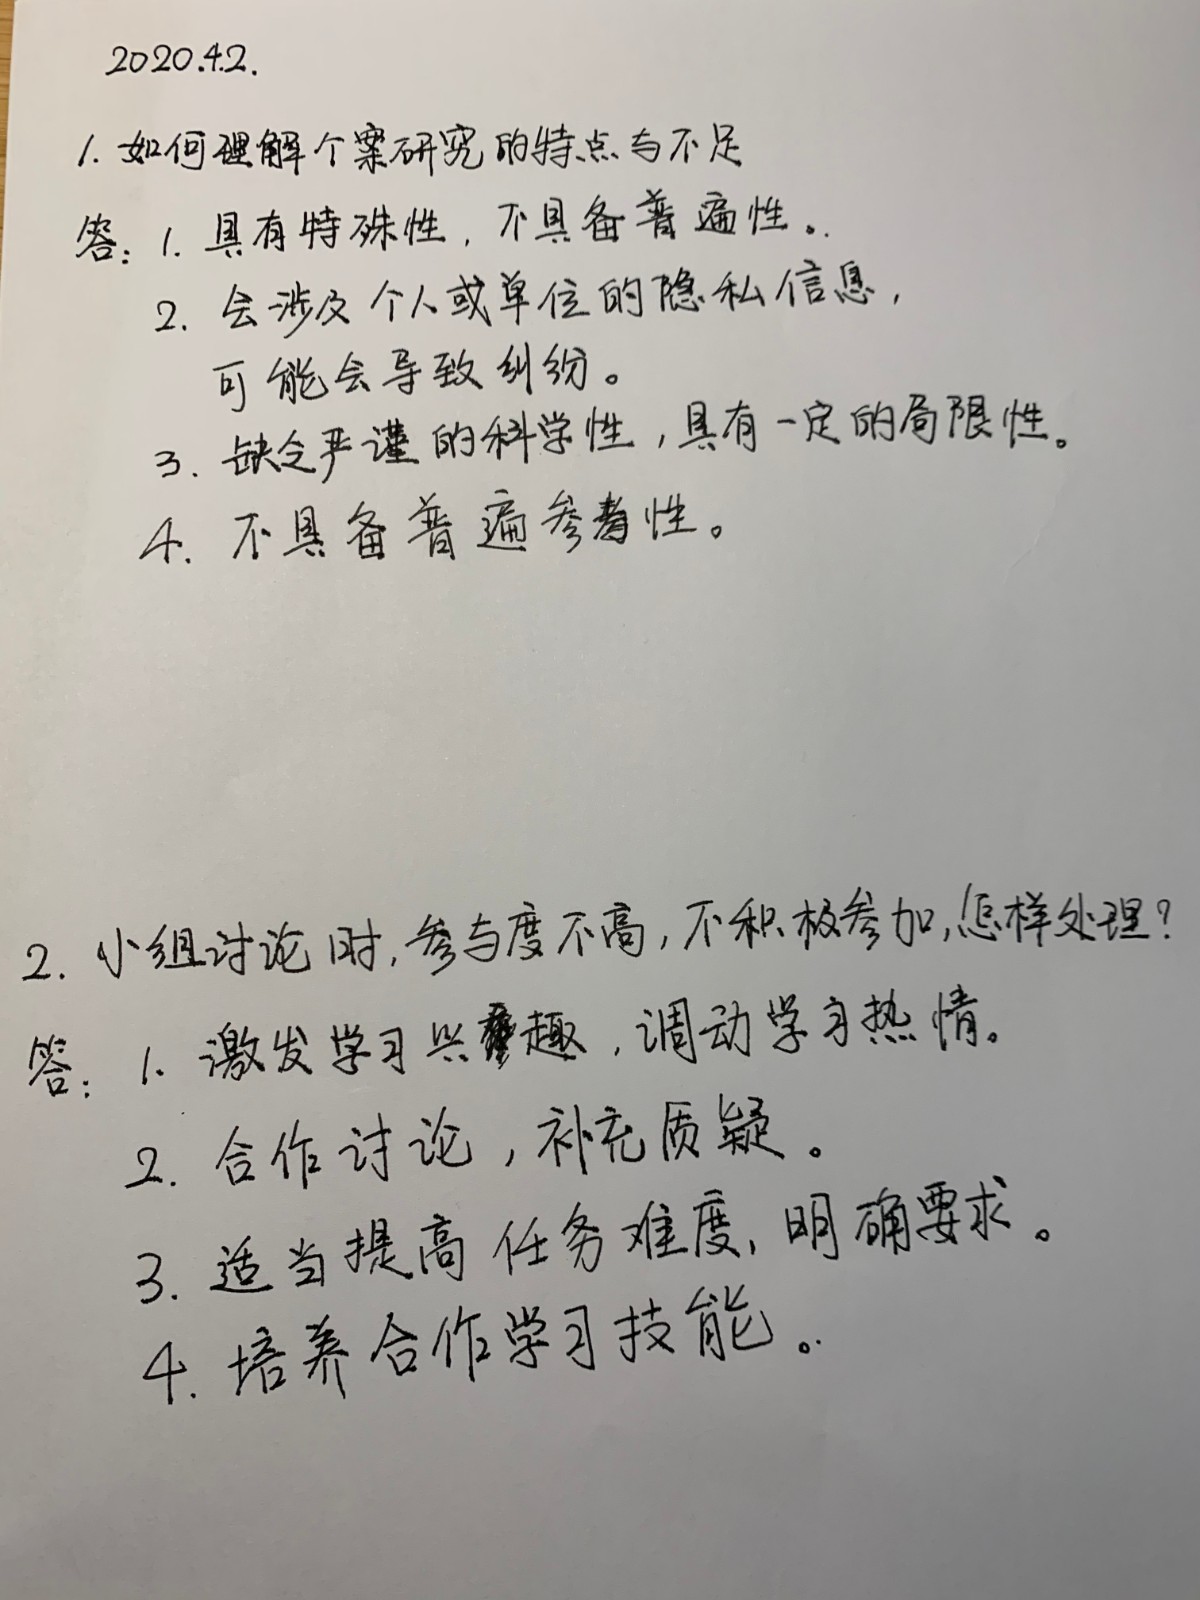 2020.4.2.
1. 如何理解个案研究的特点与不足
答：1. 具有特殊性，不具备普遍性。
2. 会涉及个人或单位的隐私信息，
可能会导致纠纷。
3. 缺乏严谨的科学性，具有一定的局限性。
4. 不具备普遍参考性。
2. 小组讨论时，参与度不高，不积极参加，怎样处理？
答：1. 激发学习兴趣，调动学习热情。
2. 合作讨论，补充质疑。
3. 适当提高任务难度，明确要求。
4. 培养合作学习技能。